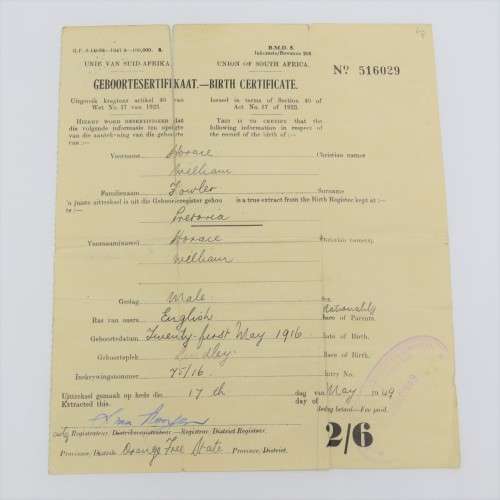 UNIE VAN SUID-AFRIKA. UNION OF SOUTH AFRICA.
B.M.D. 5.
Nº 516029
GEBOORTESERTIFIKAAT.—BIRTH CERTIFICATE.
Uitgereik kragtens artikel 40 van Issued in terms of Section 40 of
Wet No. 17 van 1923. Act No. 17 of 1923.
HIERBY WORD GESERTIFISEER dat THIS IS TO CERTIFY that the
die volgende informasie ten opsigte following information in respect of
van die aantekening van die geboorte the record of the birth of:
van:
Voorname Horace Christian names
William
Familienaam Fowler Surname
'n juiste uittreksel is uit die Geboorteregister gehou is a true extract from the Birth Register kept at:
te:
Pretoria
Voornaam(name) Horace Christian name(s)
William
Geslag Male Sex
Nationality
Ras van ouers English Race of Parents.
Geboortedatum Twenty-first May 1916 Date of Birth.
Geboorteplek Lindley Place of Birth.
Inskrywingsnommer 75/16 Entry No.
Uittreksel gemaak op hede die 17 th dag van May 1949
Extracted this day of
Fee paid.
Registrateur Distriksregistrateur—Registrar District Registrar.
2/6
Provinsie, Distrik. Orange Free State Province, District.